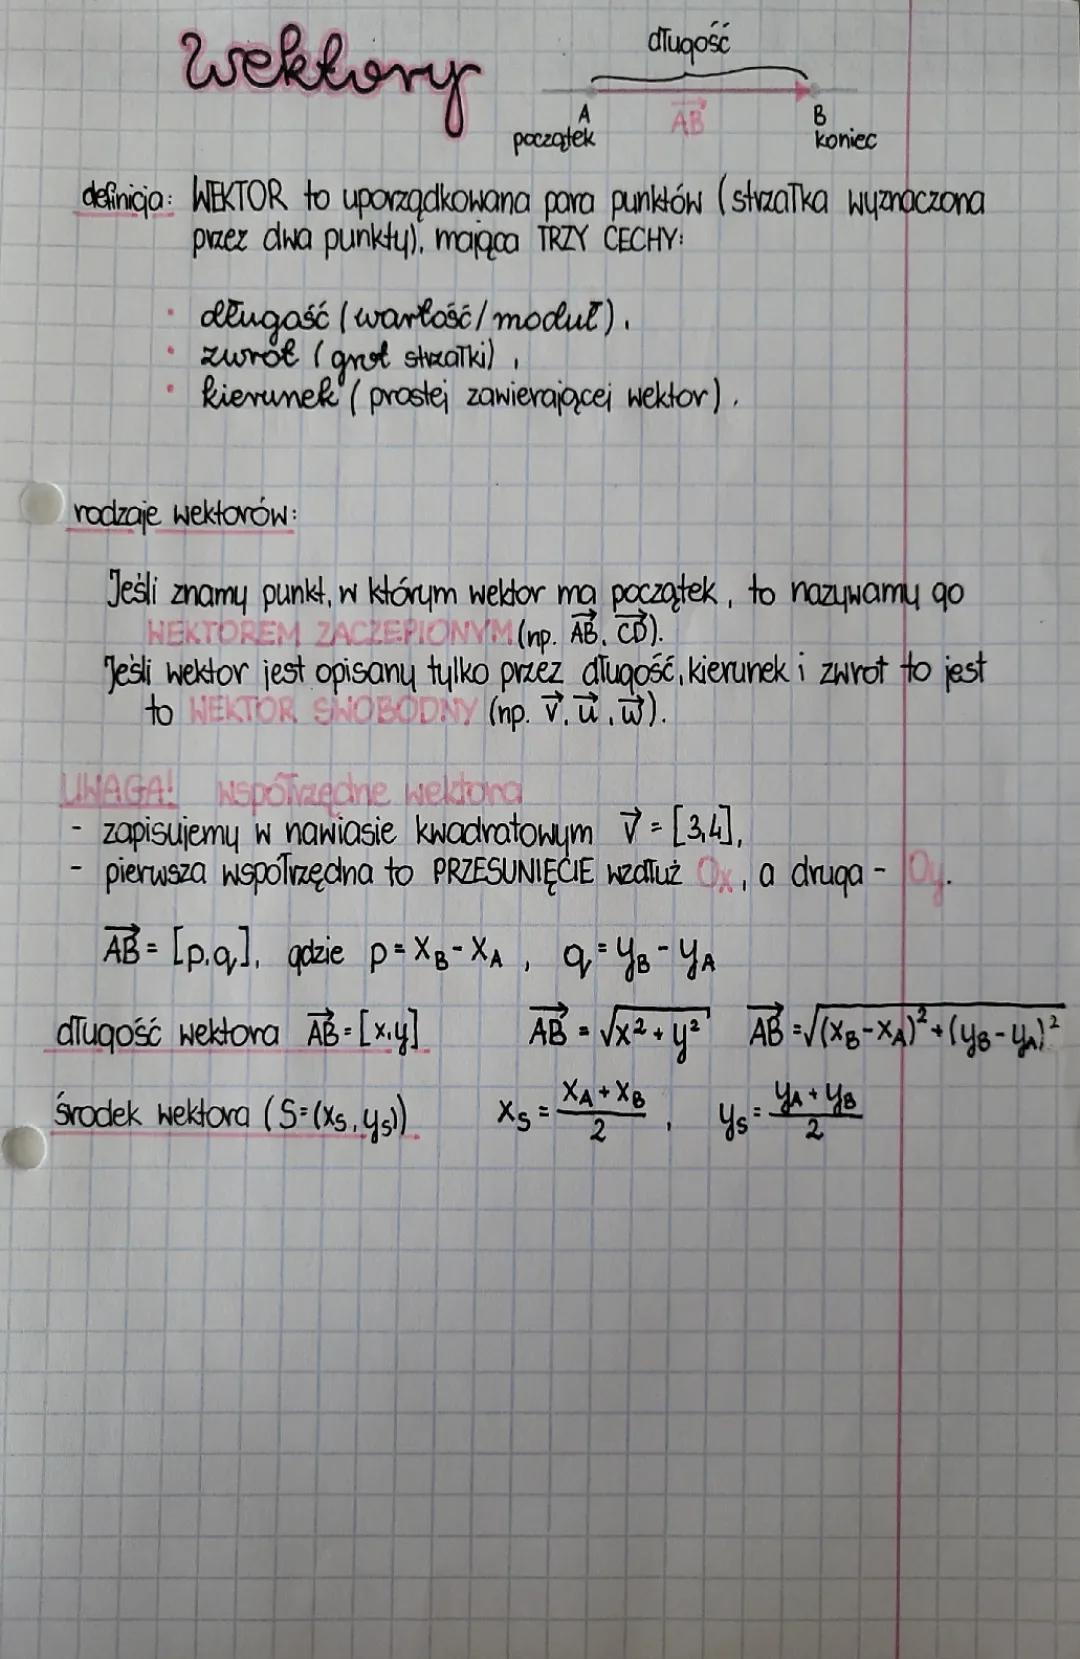 Wektory
długość
A
początek
AB→
B
koniec
definicja: WEKTOR to uporządkowana para punktów (strzałka wyznaczona
przez dwa punkty), mająca TRZY CECHY:
• długość (wartość/moduł),
• zwrot (grot strzałki),
• kierunek (prostej zawierającej wektor).
rodzaje wektorów:
Jeśli znamy punkt, w którym wektor ma początek, to nazywamy go
WEKTOREM ZACZEPIONYM (np. AB→, CD→).
Jeśli wektor jest opisany tylko przez długość, kierunek i zwrot to jest
to WEKTOR SWOBODNY (np. v→, u→, w→).
UWAGA! współrzędne wektora
- zapisujemy w nawiasie kwadratowym v→ = [3,4],
- pierwsza współrzędna to PRZESUNIĘCIE wzdłuż Ox, a druga - Oy.
AB→ = [p,q], gdzie p = x_B - x_A, q = y_B - y_A
długość wektora AB→ = [x,y] AB→ = √(x² + y²) AB→ = √((x_B - x_A)² + (y_B - y_A)²)
środek wektora (S=(x_S, y_S)) x_S = (x_A + x_B)/2, y_S = (y_A + y_B)/2